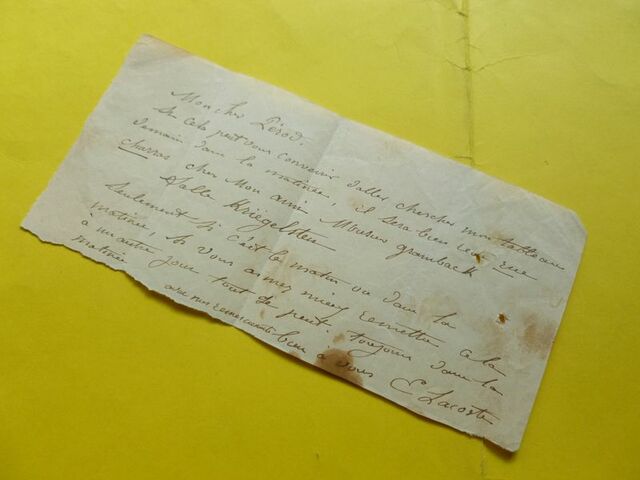 Mon cher Pérod.
Si cela peut vous convenir d'aller chercher mon tableau
demain dans la matinée, il sera bien rue
charras chez Mon ami Monsieur Grambach
Salle Kriegelstein
Seulement si c'est le matin ou dans la
matinée, si vous aimez mieux remettre cela
à un autre jour tout se peut. toujours dans la
matinée
avec mes remerciements
bien à vous C Lacoste